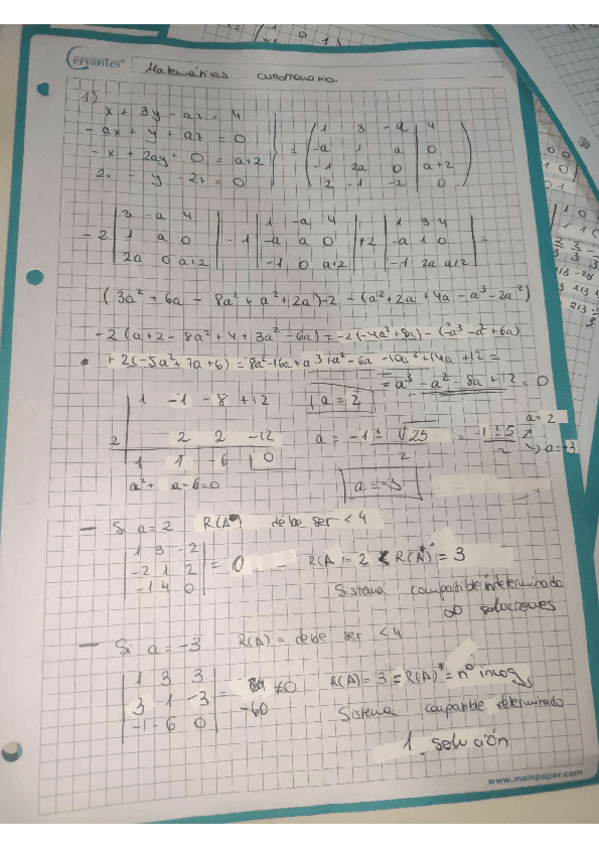 Cervantes
Matemáticas cuadronario.
1)
x + 3y - az = 4
-ax + y + az = 0
-x + 2ay · 0 = a+2
2x - y - 2z = 0
= ( 1 3 -a | 4
-a 1 a | 0
-1 2a 0 | a+2
2 -1 -2 | 0 )
-2 | 3 -a 4 | -1 | 1 -a 4 | +2 | 1 3 4 | =
| 1 a 0 | | -a a 0 | | -a 1 0 |
| 2a 0 a+2 | | -1 0 a+2 | | -1 2a a+2 |
(3a² + 6a - 8a² + a² + 2a)-2 - (a² + 2a + 4a - a³ - 2a²)
-2(a+2 - 8a² + 4 + 3a² - 6a) = -2(-4a² + 8a) - (-a³ - a² + 6a)
+ 2(-5a² + 7a + 6) = 8a² - 16a + a³ + a² - 6a - 10a² + 14a + 12 =
= a³ - a² - 8a + 12 = 0
1 -1 -8 +12
2 2 2 -12
1 1 -6 0
a² + a - 6 = 0
a = 2
a = -1 ± √25 / 2 = -1 ± 5 / 2
a = 2
a = -3
a = -3
- Si a = 2 R(A) debe ser < 4
| 1 3 -2 |
| -2 1 2 | = 0
| -1 4 0 |
R(A) = 2 < R(A)* = 3
Sistema compatible indeterminado
∞ soluciones
- Si a = -3 R(A) = debe ser < 4
| 1 3 3 |
| 3 1 -3 | = ≠0
| -1 -6 0 | -60
R(A) = 3 = R(A)* = nº incog
Sistema compatible determinado
1 solución
www.mainpaper.com